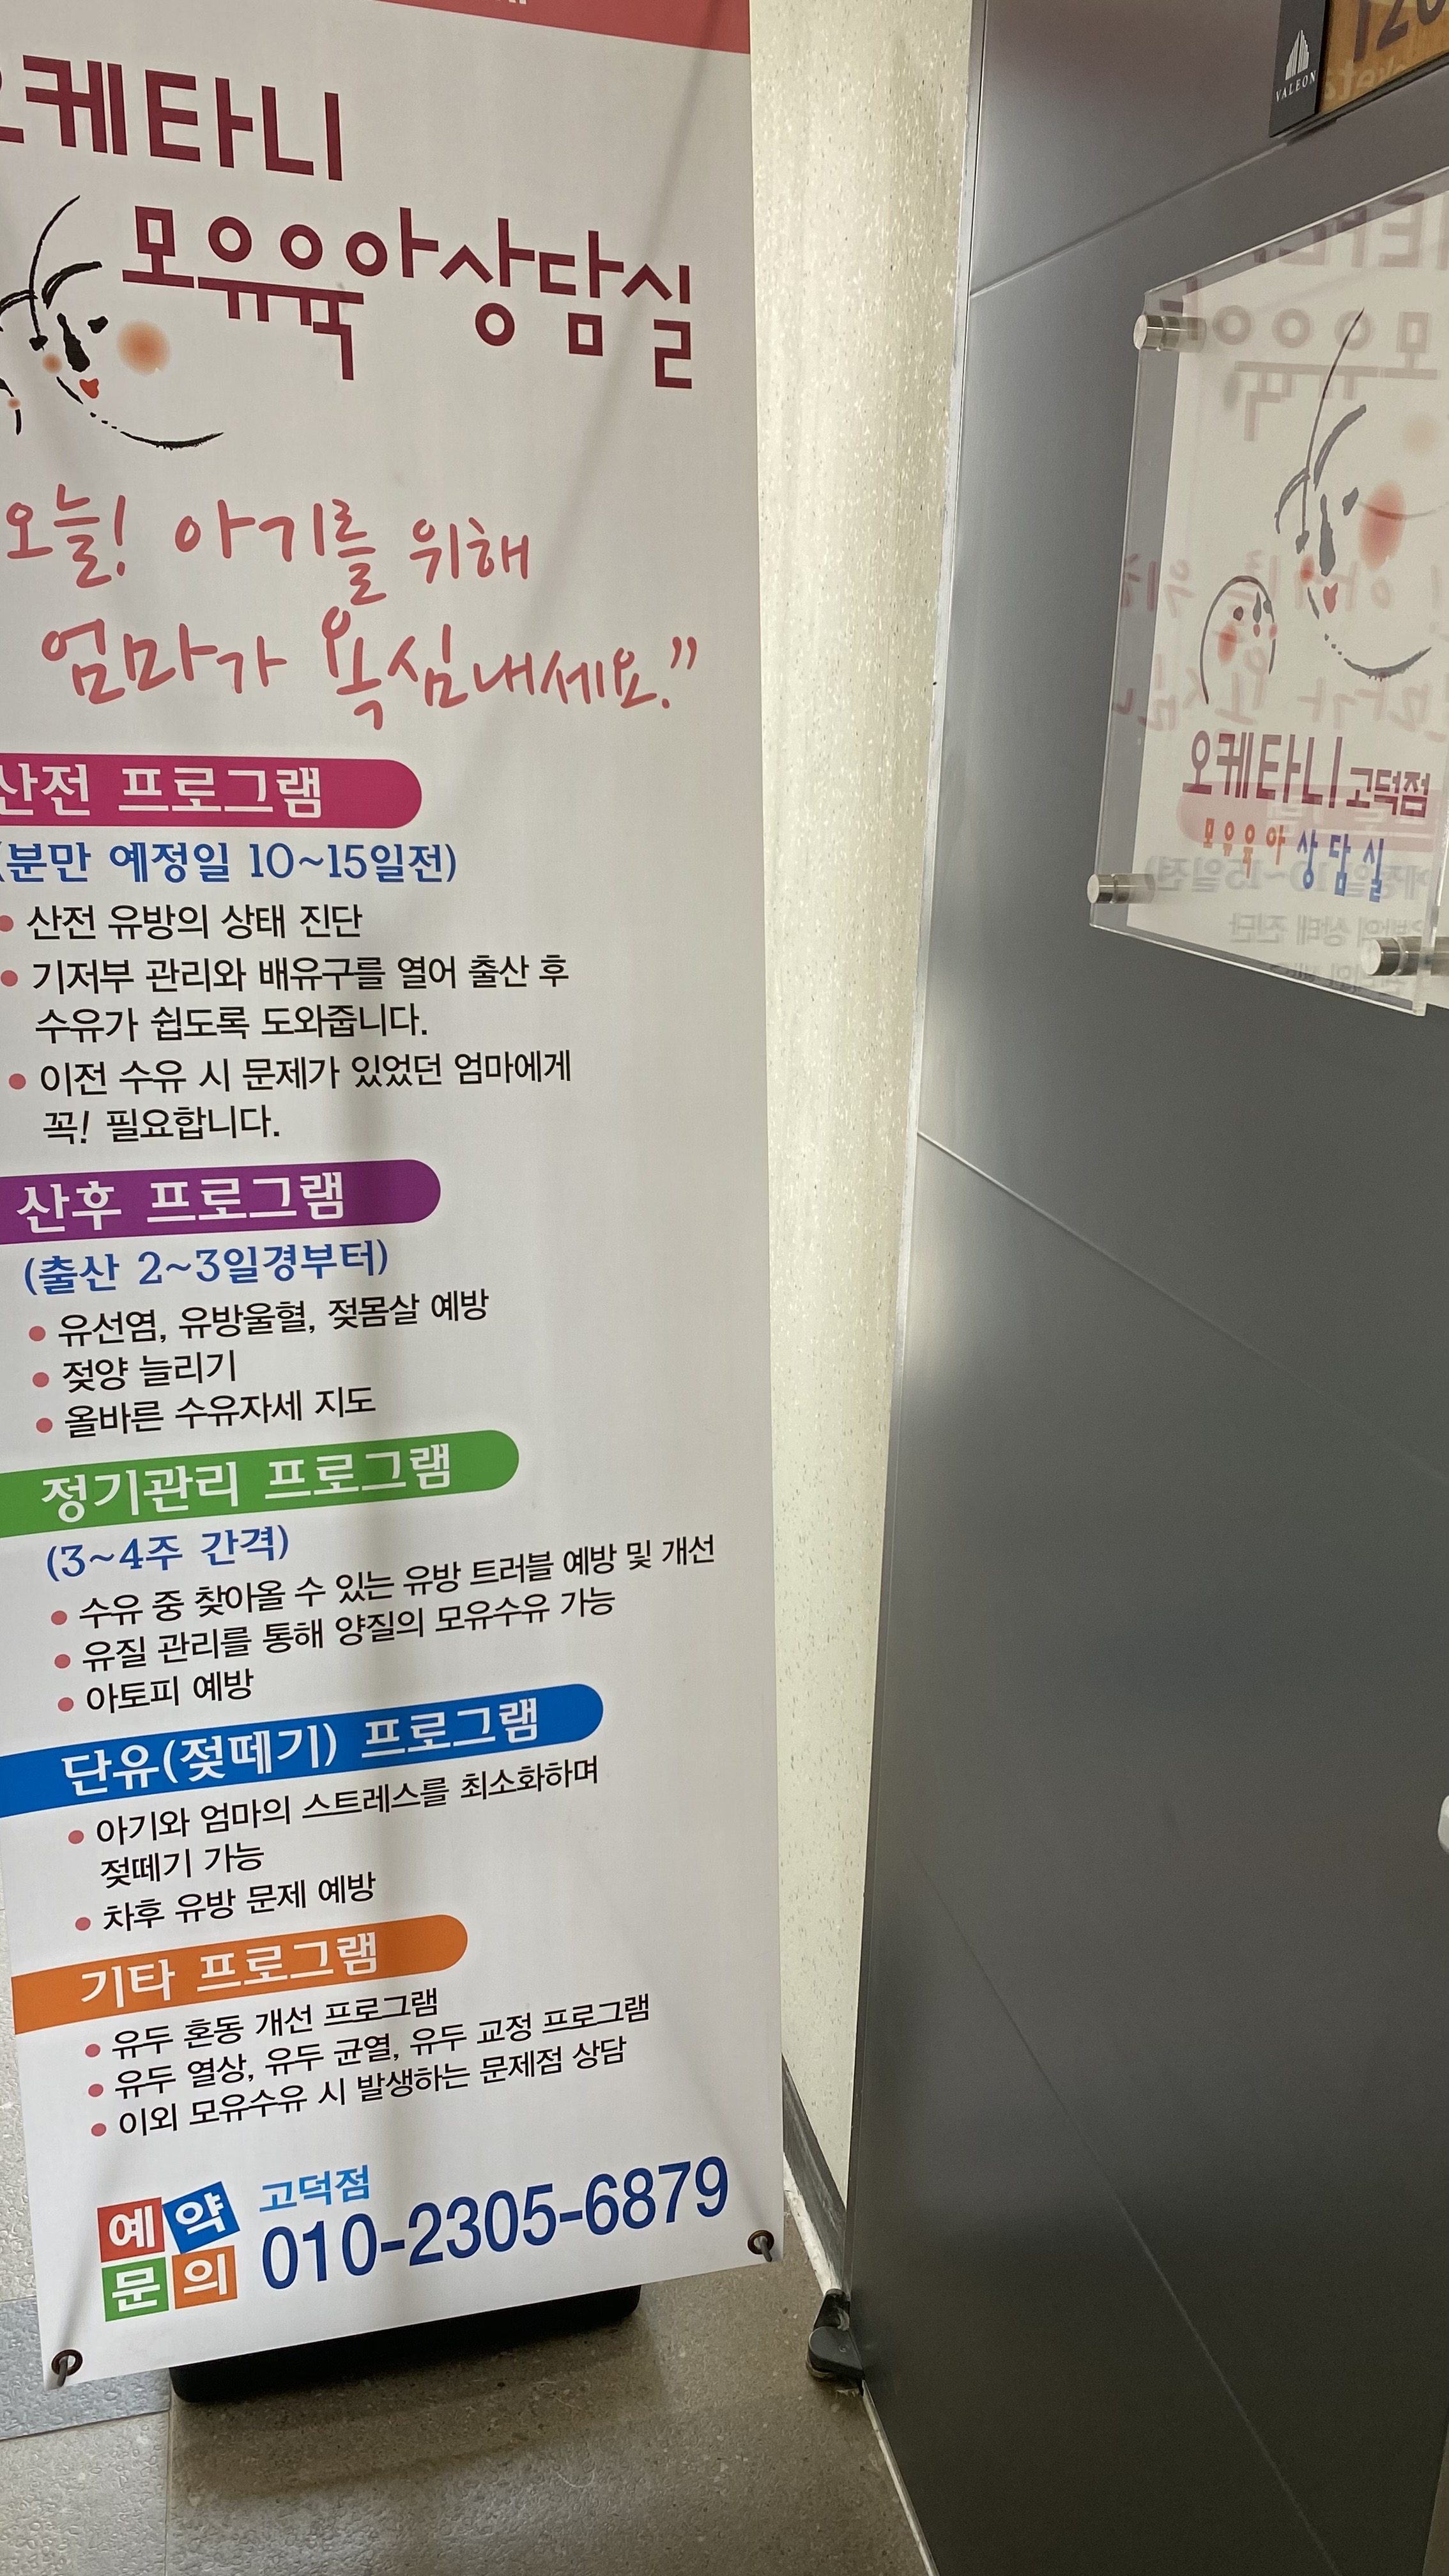 오케타니
모유육아상담실
오늘! 아기를 위해
엄마가 욕심내세요.”
산전 프로그램
(분만 예정일 10~15일전)
• 산전 유방의 상태 진단
• 기저부 관리와 배유구를 열어 출산 후
수유가 쉽도록 도와줍니다.
• 이전 수유 시 문제가 있었던 엄마에게
꼭! 필요합니다.
산후 프로그램
(출산 2~3일경부터)
• 유선염, 유방울혈, 젖몸살 예방
• 젖양 늘리기
• 올바른 수유자세 지도
정기관리 프로그램
(3~4주 간격)
• 수유 중 찾아올 수 있는 유방 트러블 예방 및 개선
• 유질 관리를 통해 양질의 모유수유 가능
• 아토피 예방
단유(젖떼기) 프로그램
• 아기와 엄마의 스트레스를 최소화하며
젖떼기 가능
• 차후 유방 문제 예방
기타 프로그램
• 유두 혼동 개선 프로그램
• 유두 열상, 유두 균열, 유두 교정 프로그램
• 이외 모유수유 시 발생하는 문제점 상담
예약
문의
고덕점
010-2305-6879
VALEON
오케타니 고덕점
모유육아 상담실